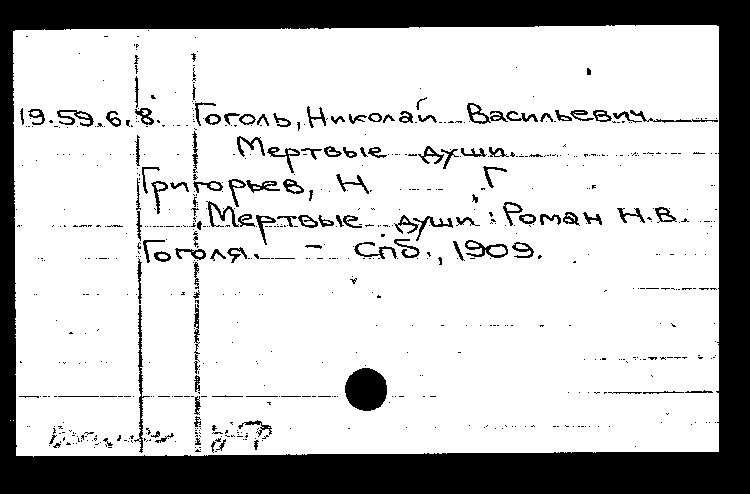 19.59.6.8. Гоголь, Николай Васильевич.
Мертвые души.
Григорьев, Н Г
Мертвые души: Роман Н.В.
Гоголя. - Спб., 1909.